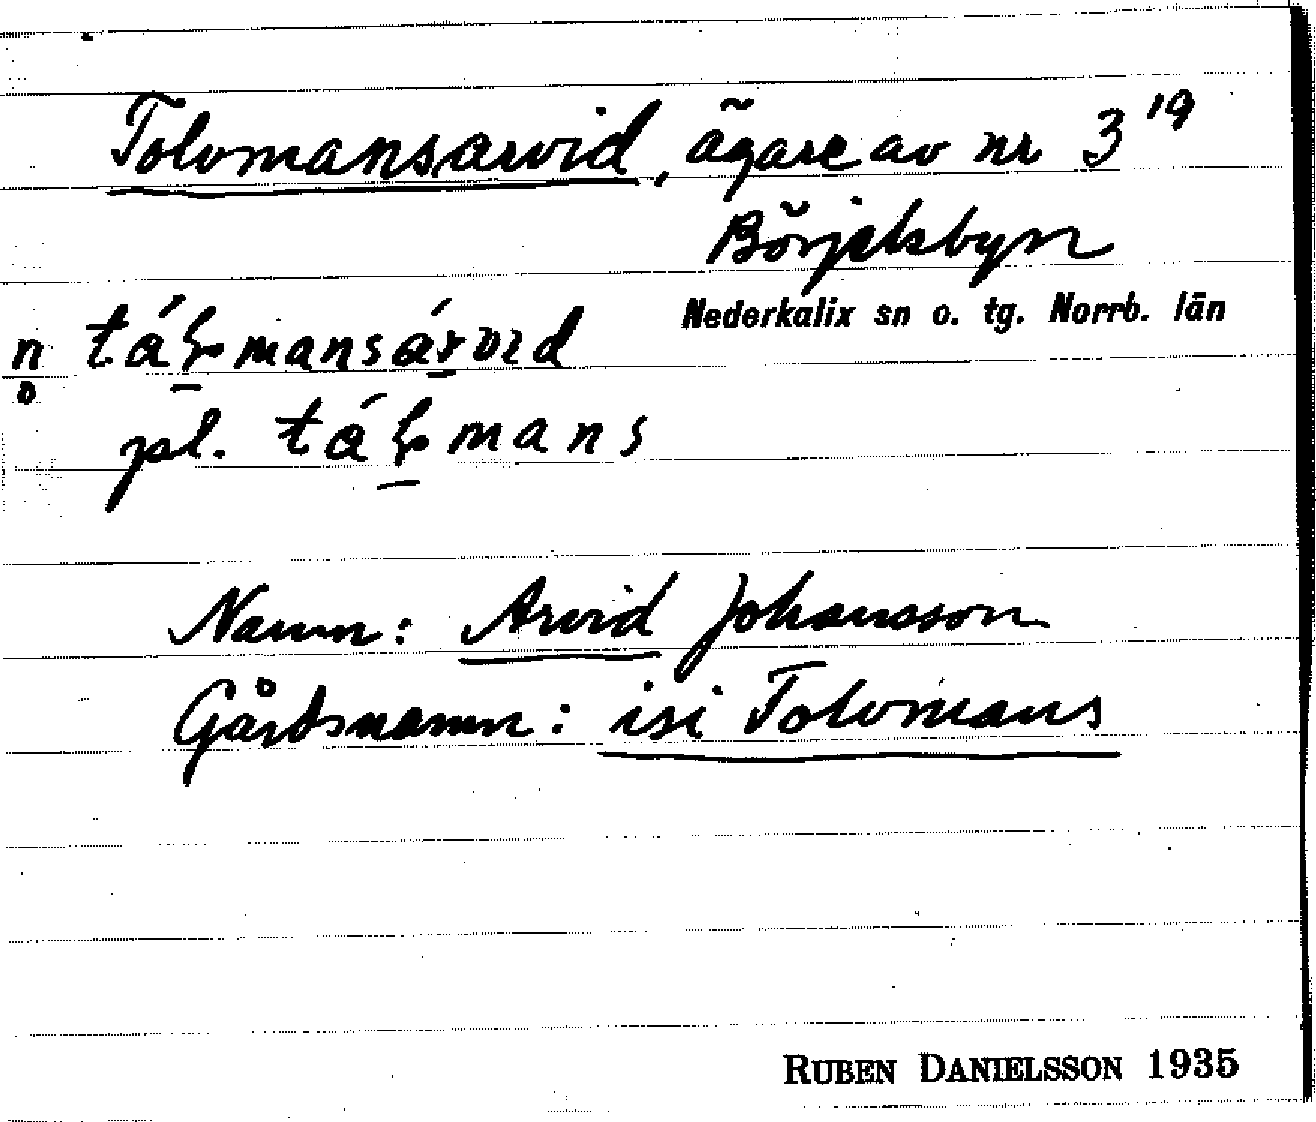 Tolvmansarvid, ägare av nr 3¹⁹
Börjelsbyn
Nederkalix sn o. tg. Norrb. län
pl.
Namn: Arvid Johansson
Gårdsnamn: isi Tolvmans
RUBEN DANIELSSON 1935